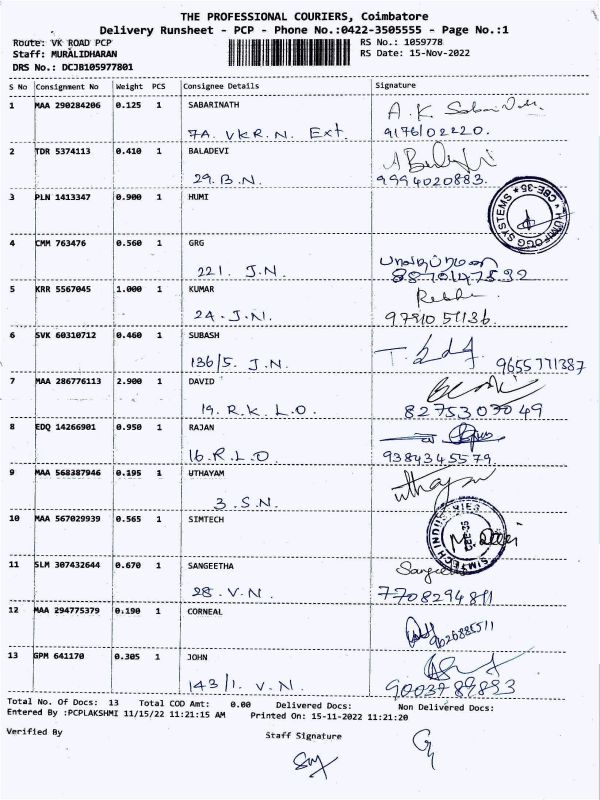 THE PROFESSIONAL COURIERS, Coimbatore
Delivery Runsheet - PCP - Phone No.:0422-3505555 - Page No.:1
Route: VK ROAD PCP RS No.: 1059778
Staff: MURALIDHARAN RS Date: 15-Nov-2022
DRS No.: DCJB105977801
S No Consignment No Weight PCS Consignee Details Signature
1 MAA 290284206 0.125 1 SABARINATH A.K
7A. VKR.N. Ext. 9176102220.
2 TDR 5374113 0.410 1 BALADEVI
29. B.N. 9994020883.
3 PLN 1413347 0.900 1 HUMI
SYSTEMS * CBE-35 *
4 CMM 763476 0.560 1 GRG
221. J.N.
5 KRR 5567045 1.000 1 KUMAR
24. J.N.
6 SVK 60310712 0.460 1 SUBASH
136/5. J.N. 9655771387
7 MAA 286776113 2.900 1 DAVID
19. R.K.L.O.
8 EDQ 14266901 0.950 1 RAJAN
16. R.L.O. 9384345579
9 MAA 568387946 0.195 1 UTHAYAM uthayam
3. S.N.
10 MAA 567029939 0.565 1 SIMTECH
SIMTECH INDUSTRIES
11 SLM 307432644 0.670 1 SANGEETHA Sangeetha
28. V.N. 7708294811
12 MAA 294775379 0.190 1 CORNEAL
13 GPM 641170 0.305 1 JOHN
143/1. V.N. 9003789893
Total No. Of Docs: 13 Total COD Amt: 0.00 Delivered Docs: Non Delivered Docs:
Entered By :PCPLAKSHMI 11/15/22 11:21:15 AM Printed On: 15-11-2022 11:21:20
Verified By Staff Signature